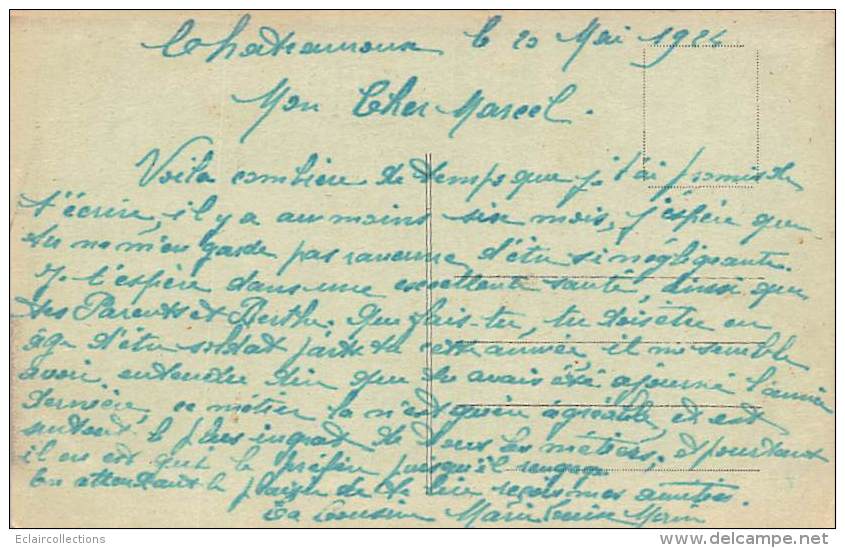 le 20 Mai 1924
Mon Cher Marcel.
Voila combien de temps que je t'ai promis de
t'écrire, il y a au moins six mois, j'espère que
tu ne m'en garde pas rancune d'être si négligeante.
Je t'espère dans une excellente santé, ainsi que
tes Parents et Berthe. Que fais-tu, tu dois être en
âge d'être soldat parts tu cette année, il me semble
avoir entendre dire que tu avais été ajourné l'année
dernière, ce métier la n'est guère agréable, et est
surtout le plus ingrat de tous les métiers, et pourtant
il en est qui le préfère puisqu'il rengage.
En attendant le plaisir de te lire reçois mes amitiés.
Ta Cousine Marie
Eclaircollections
www.delcampe.net